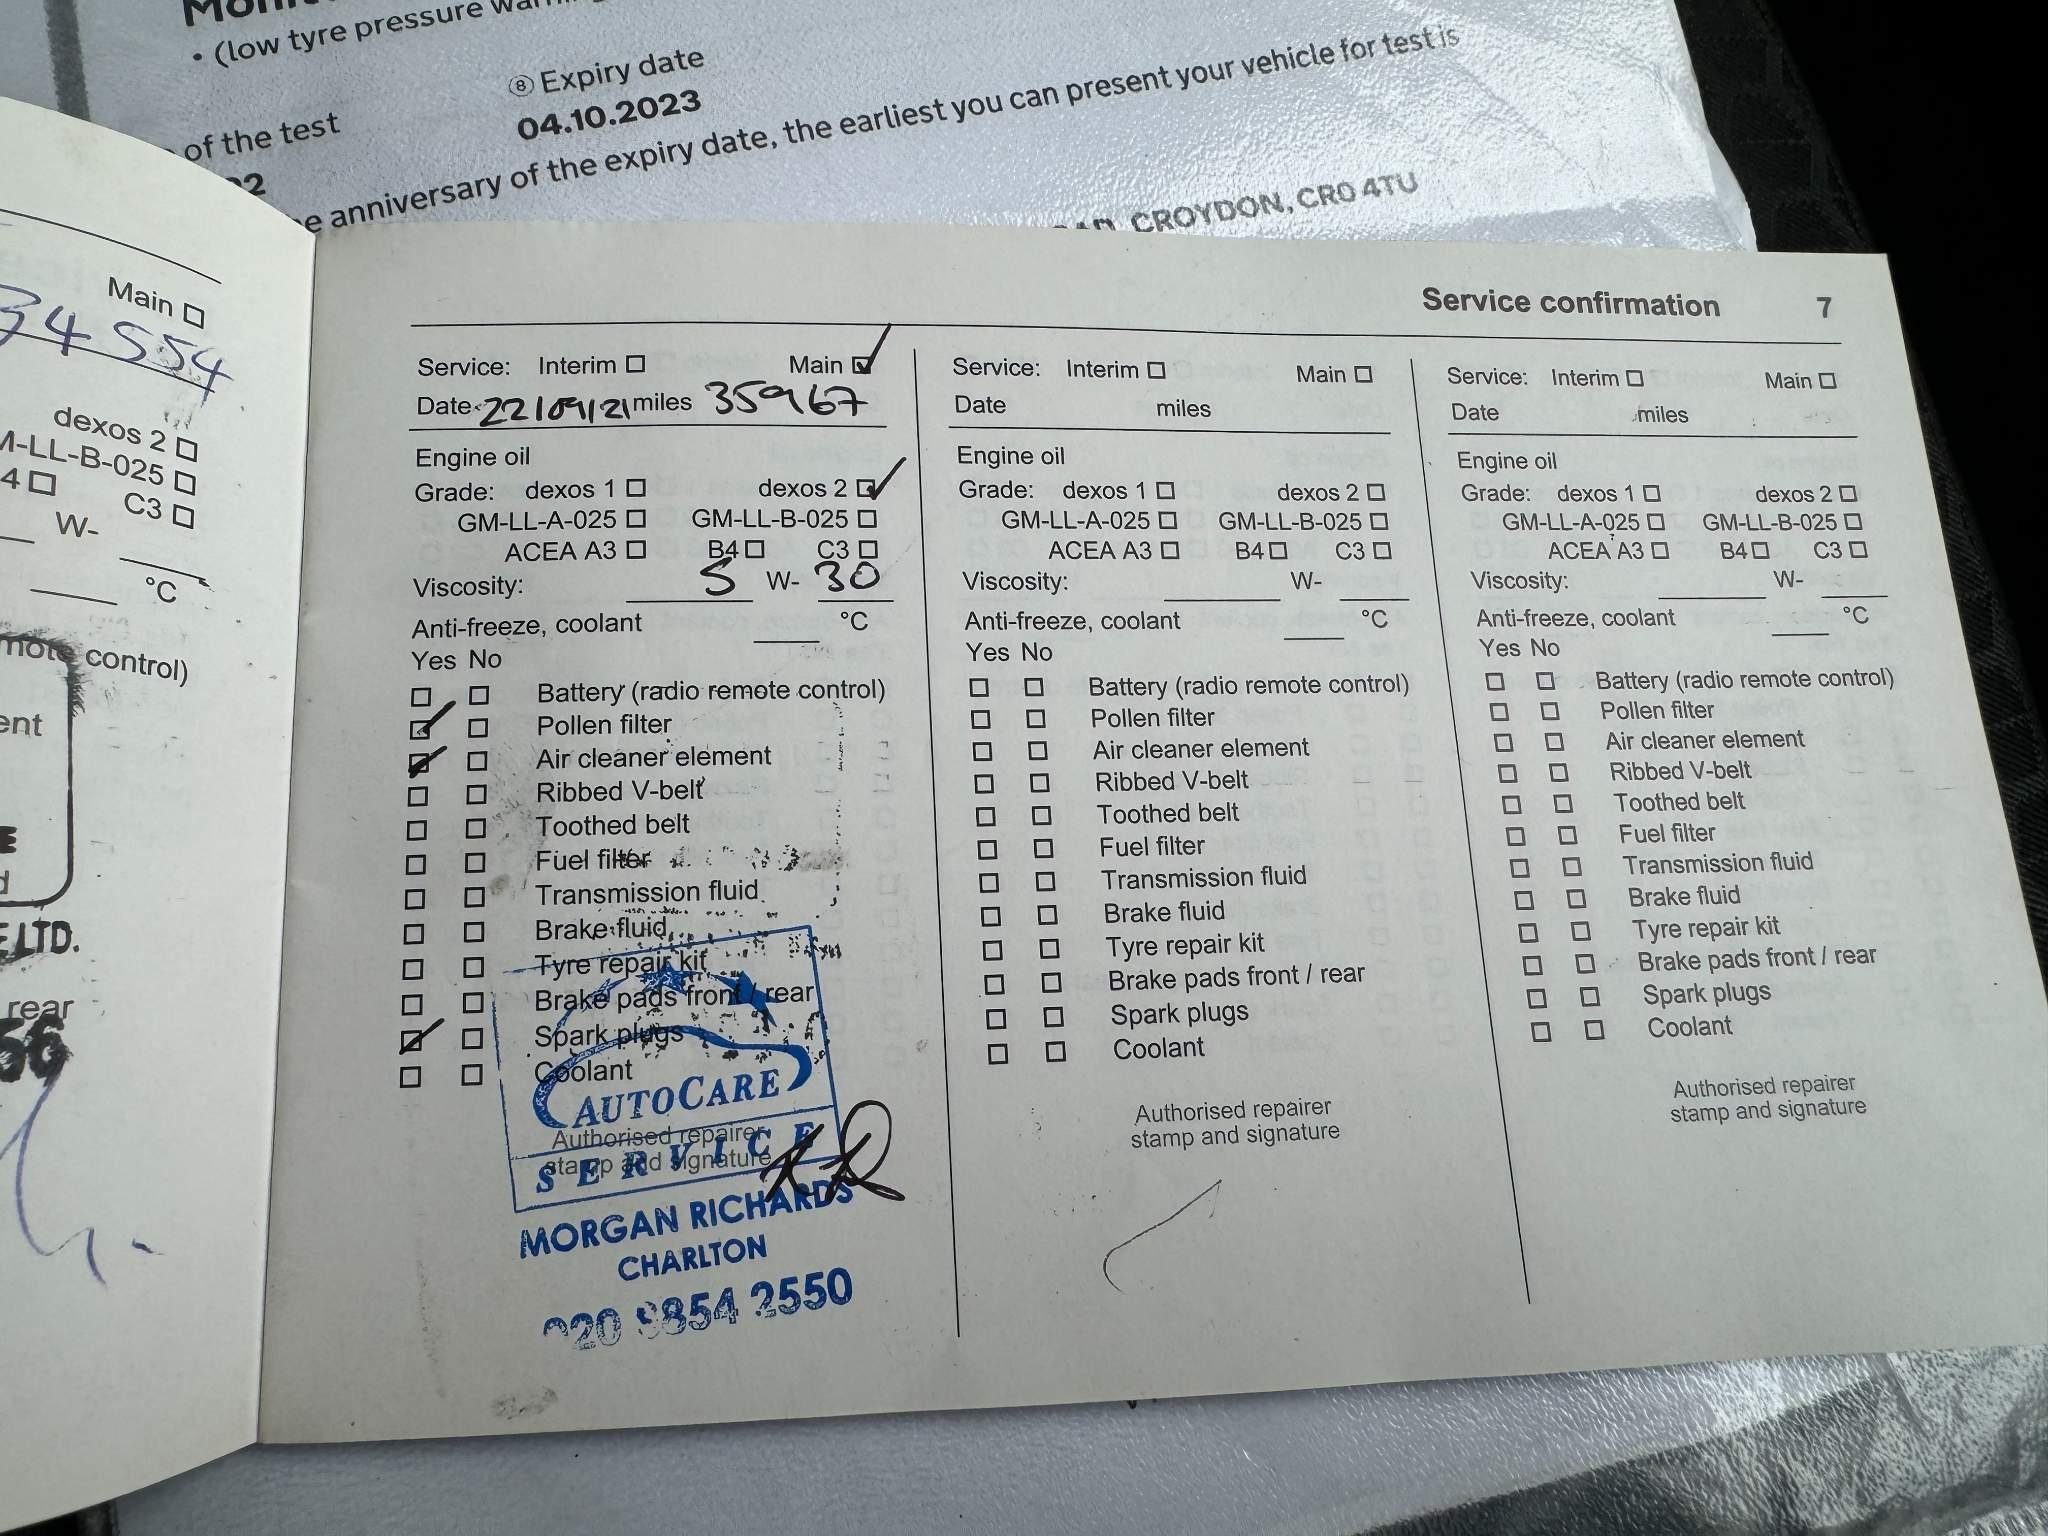 • (low tyre pressure
⑧ Expiry date
of the test
04.10.2023
anniversary of the expiry date, the earliest you can present your vehicle for test is
CROYDON, CR0 4TU
Main ☐
34554
dexos 2 ☐
-LL-B-025 ☐
4 ☐ C3 ☐
W-
°C
control)
LTD.
rear
Service confirmation 7
Service: Interim ☐ Main ☑
Date 22/09/21 miles 35967
Engine oil
Grade: dexos 1 ☐ dexos 2 ☑
GM-LL-A-025 ☐ GM-LL-B-025 ☐
ACEA A3 ☐ B4 ☐ C3 ☐
Viscosity: 5 W- 30
Anti-freeze, coolant °C
Yes No
☐ ☐ Battery (radio remote control)
☑ ☐ Pollen filter
☑ ☐ Air cleaner element
☐ ☐ Ribbed V-belt
☐ ☐ Toothed belt
☐ ☐ Fuel filter
☐ ☐ Transmission fluid
☐ ☐ Brake fluid
☐ ☐ Tyre repair kit
☐ ☐ Brake pads front / rear
☑ ☐ Spark plugs
☐ ☐ Coolant
AUTOCARE
Authorised repairer
stamp and signature
SERVICE
MORGAN RICHARDS
CHARLTON
020 8854 2550
Service: Interim ☐ Main ☐
Date miles
Engine oil
Grade: dexos 1 ☐ dexos 2 ☐
GM-LL-A-025 ☐ GM-LL-B-025 ☐
ACEA A3 ☐ B4 ☐ C3 ☐
Viscosity: W-
Anti-freeze, coolant °C
Yes No
☐ ☐ Battery (radio remote control)
☐ ☐ Pollen filter
☐ ☐ Air cleaner element
☐ ☐ Ribbed V-belt
☐ ☐ Toothed belt
☐ ☐ Fuel filter
☐ ☐ Transmission fluid
☐ ☐ Brake fluid
☐ ☐ Tyre repair kit
☐ ☐ Brake pads front / rear
☐ ☐ Spark plugs
☐ ☐ Coolant
Authorised repairer
stamp and signature
Service: Interim ☐ Main ☐
Date miles
Engine oil
Grade: dexos 1 ☐ dexos 2 ☐
GM-LL-A-025 ☐ GM-LL-B-025 ☐
ACEA A3 ☐ B4 ☐ C3 ☐
Viscosity: W-
Anti-freeze, coolant °C
Yes No
☐ ☐ Battery (radio remote control)
☐ ☐ Pollen filter
☐ ☐ Air cleaner element
☐ ☐ Ribbed V-belt
☐ ☐ Toothed belt
☐ ☐ Fuel filter
☐ ☐ Transmission fluid
☐ ☐ Brake fluid
☐ ☐ Tyre repair kit
☐ ☐ Brake pads front / rear
☐ ☐ Spark plugs
☐ ☐ Coolant
Authorised repairer
stamp and signature